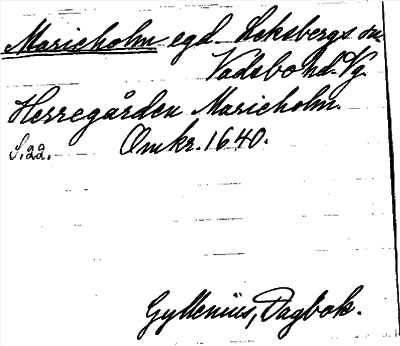 Marieholm egd Leksbergs sn.
Vadsbo hd. Vg.
Herregården Marieholm.
S. 22. Omkr. 1640.
Gyllenius, Dagbok.